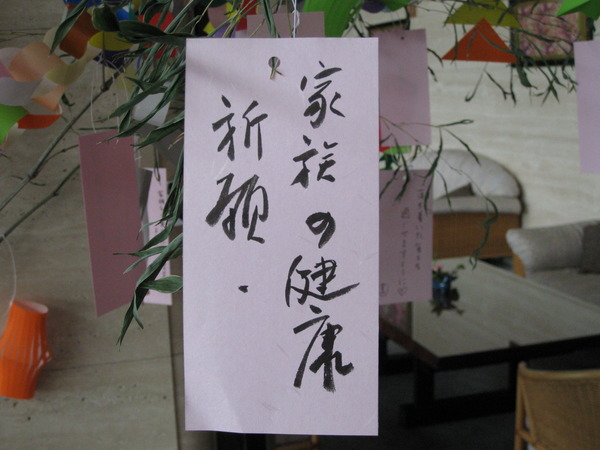 家族の健康
祈願.